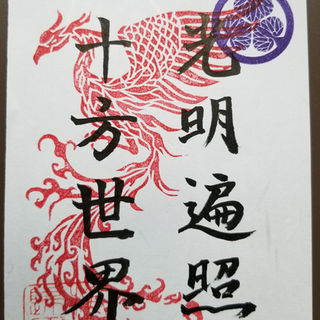 光明遍照
十方世界